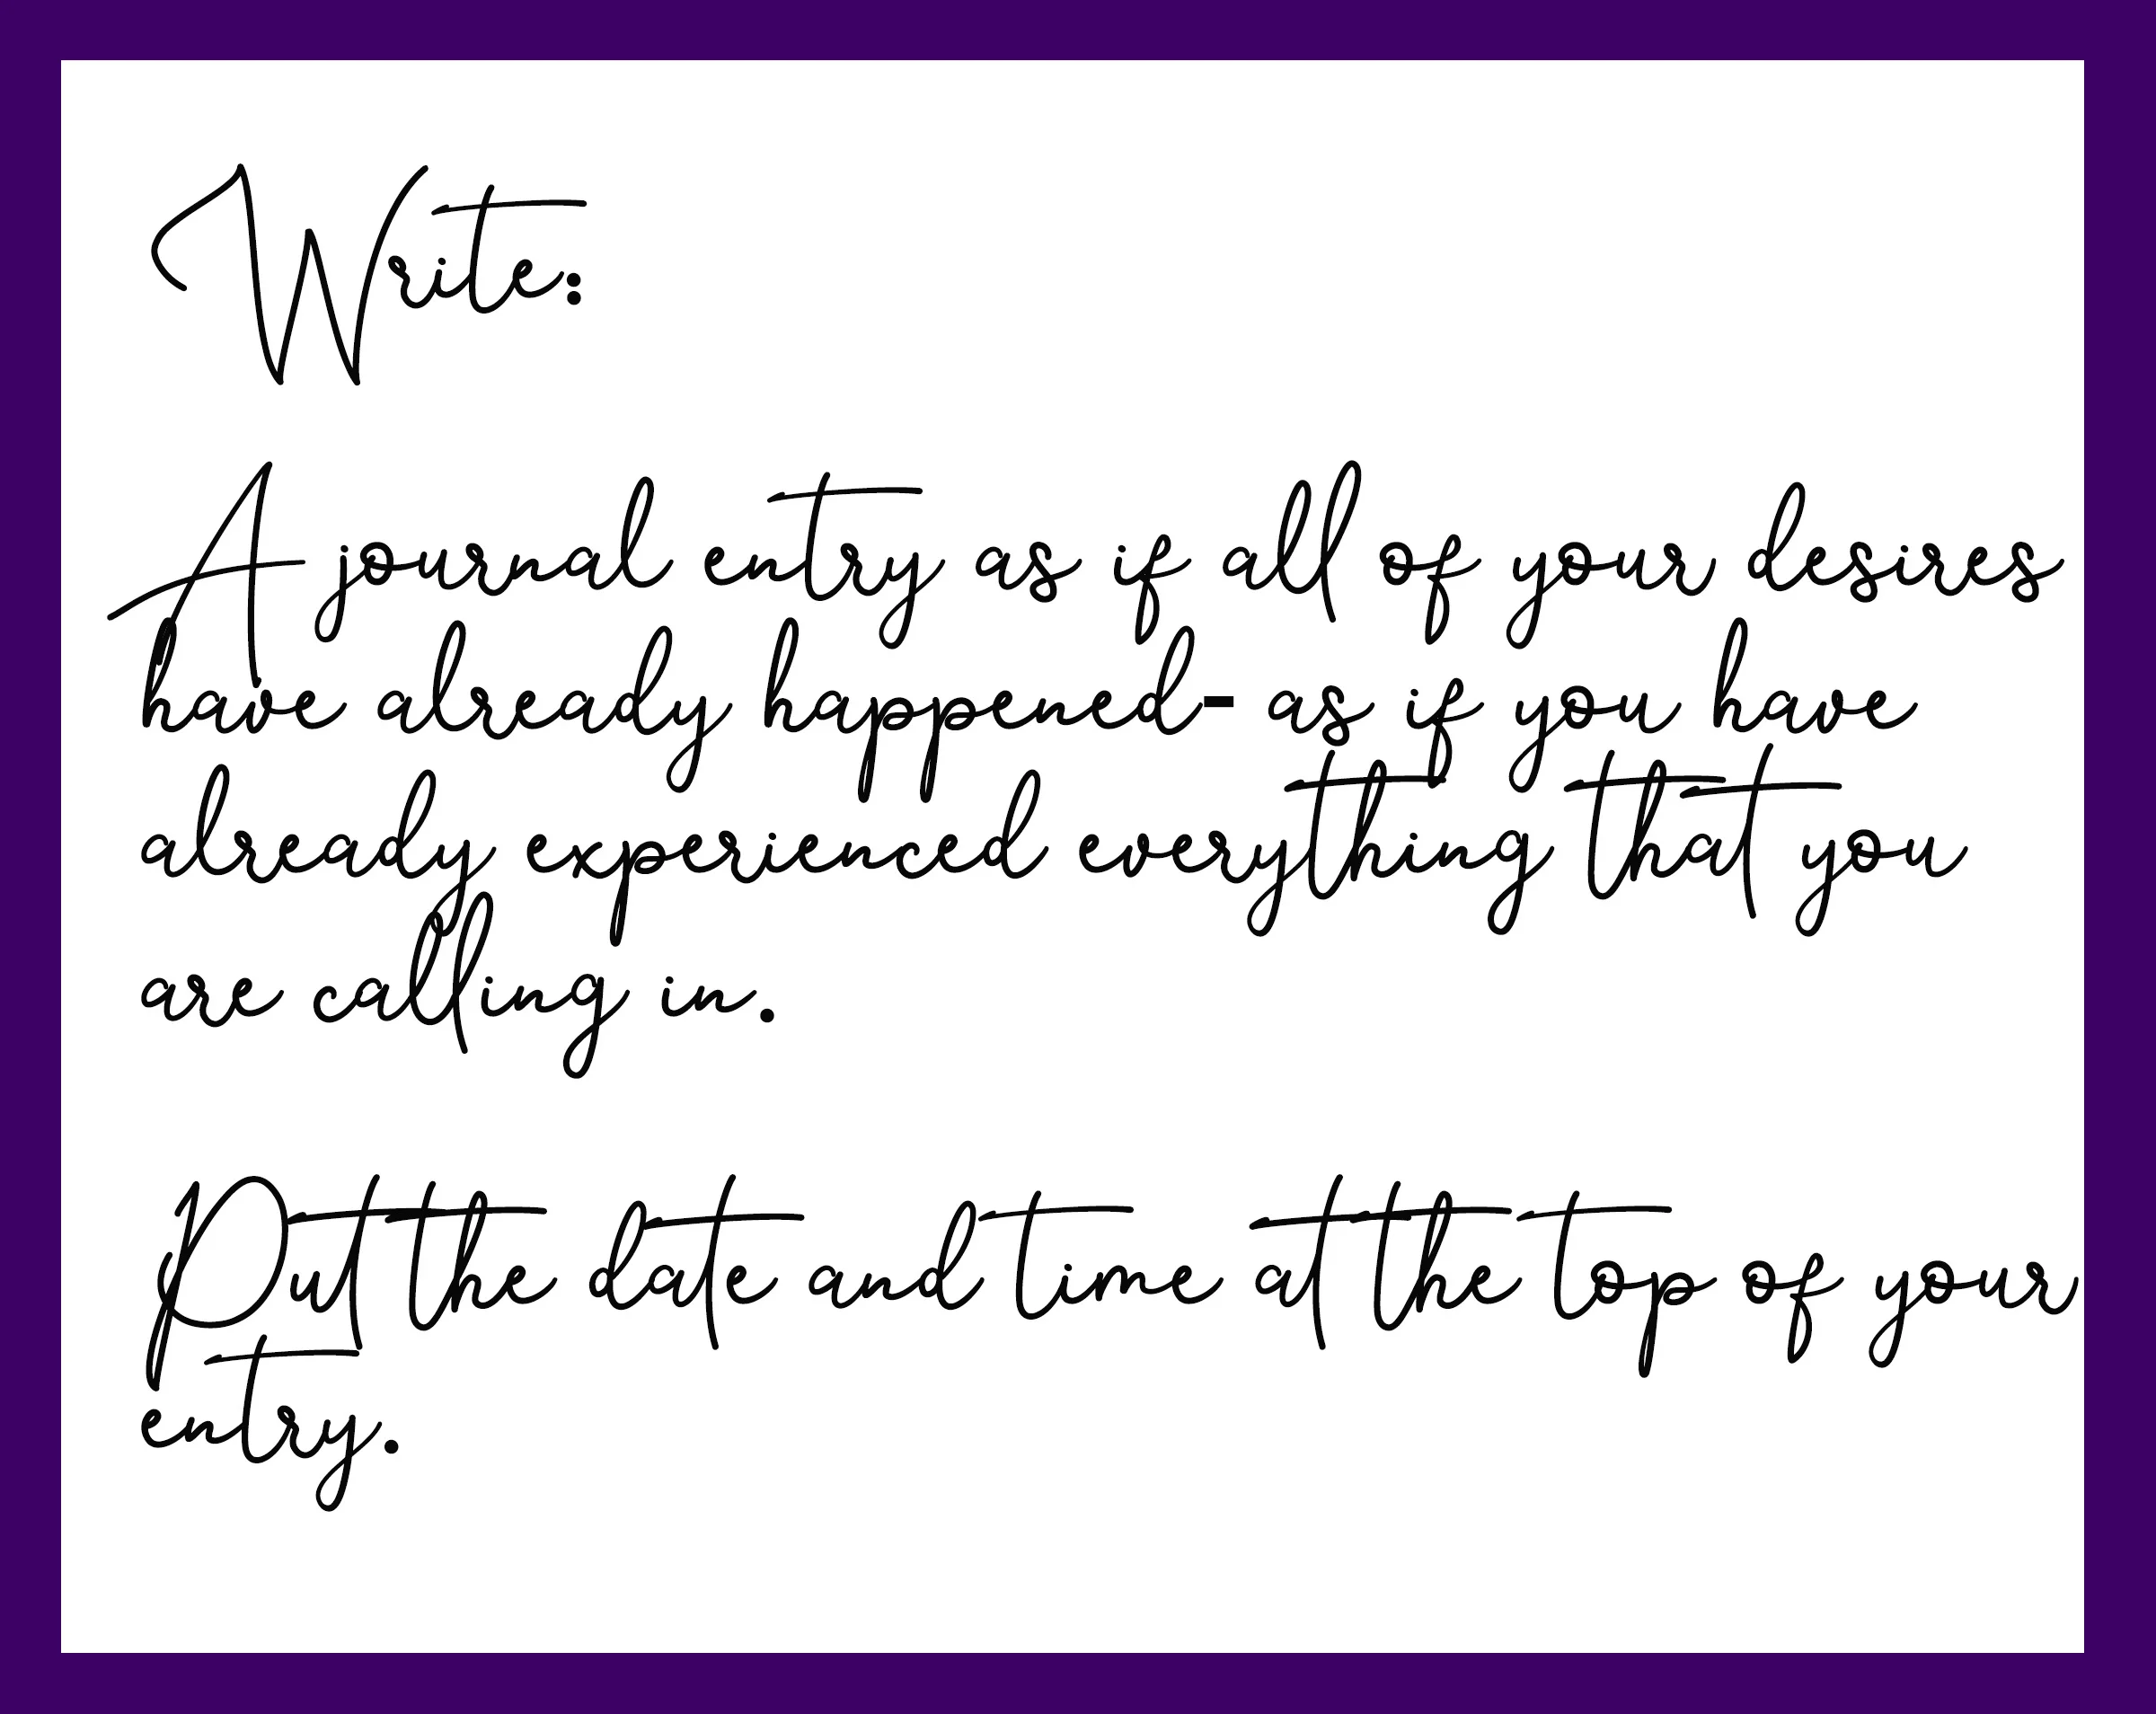 Write:
A journal entry as if all of your desires
have already happened- as if you have
already experienced everything that you
are calling in.
Put the date and time at the top of your
entry.